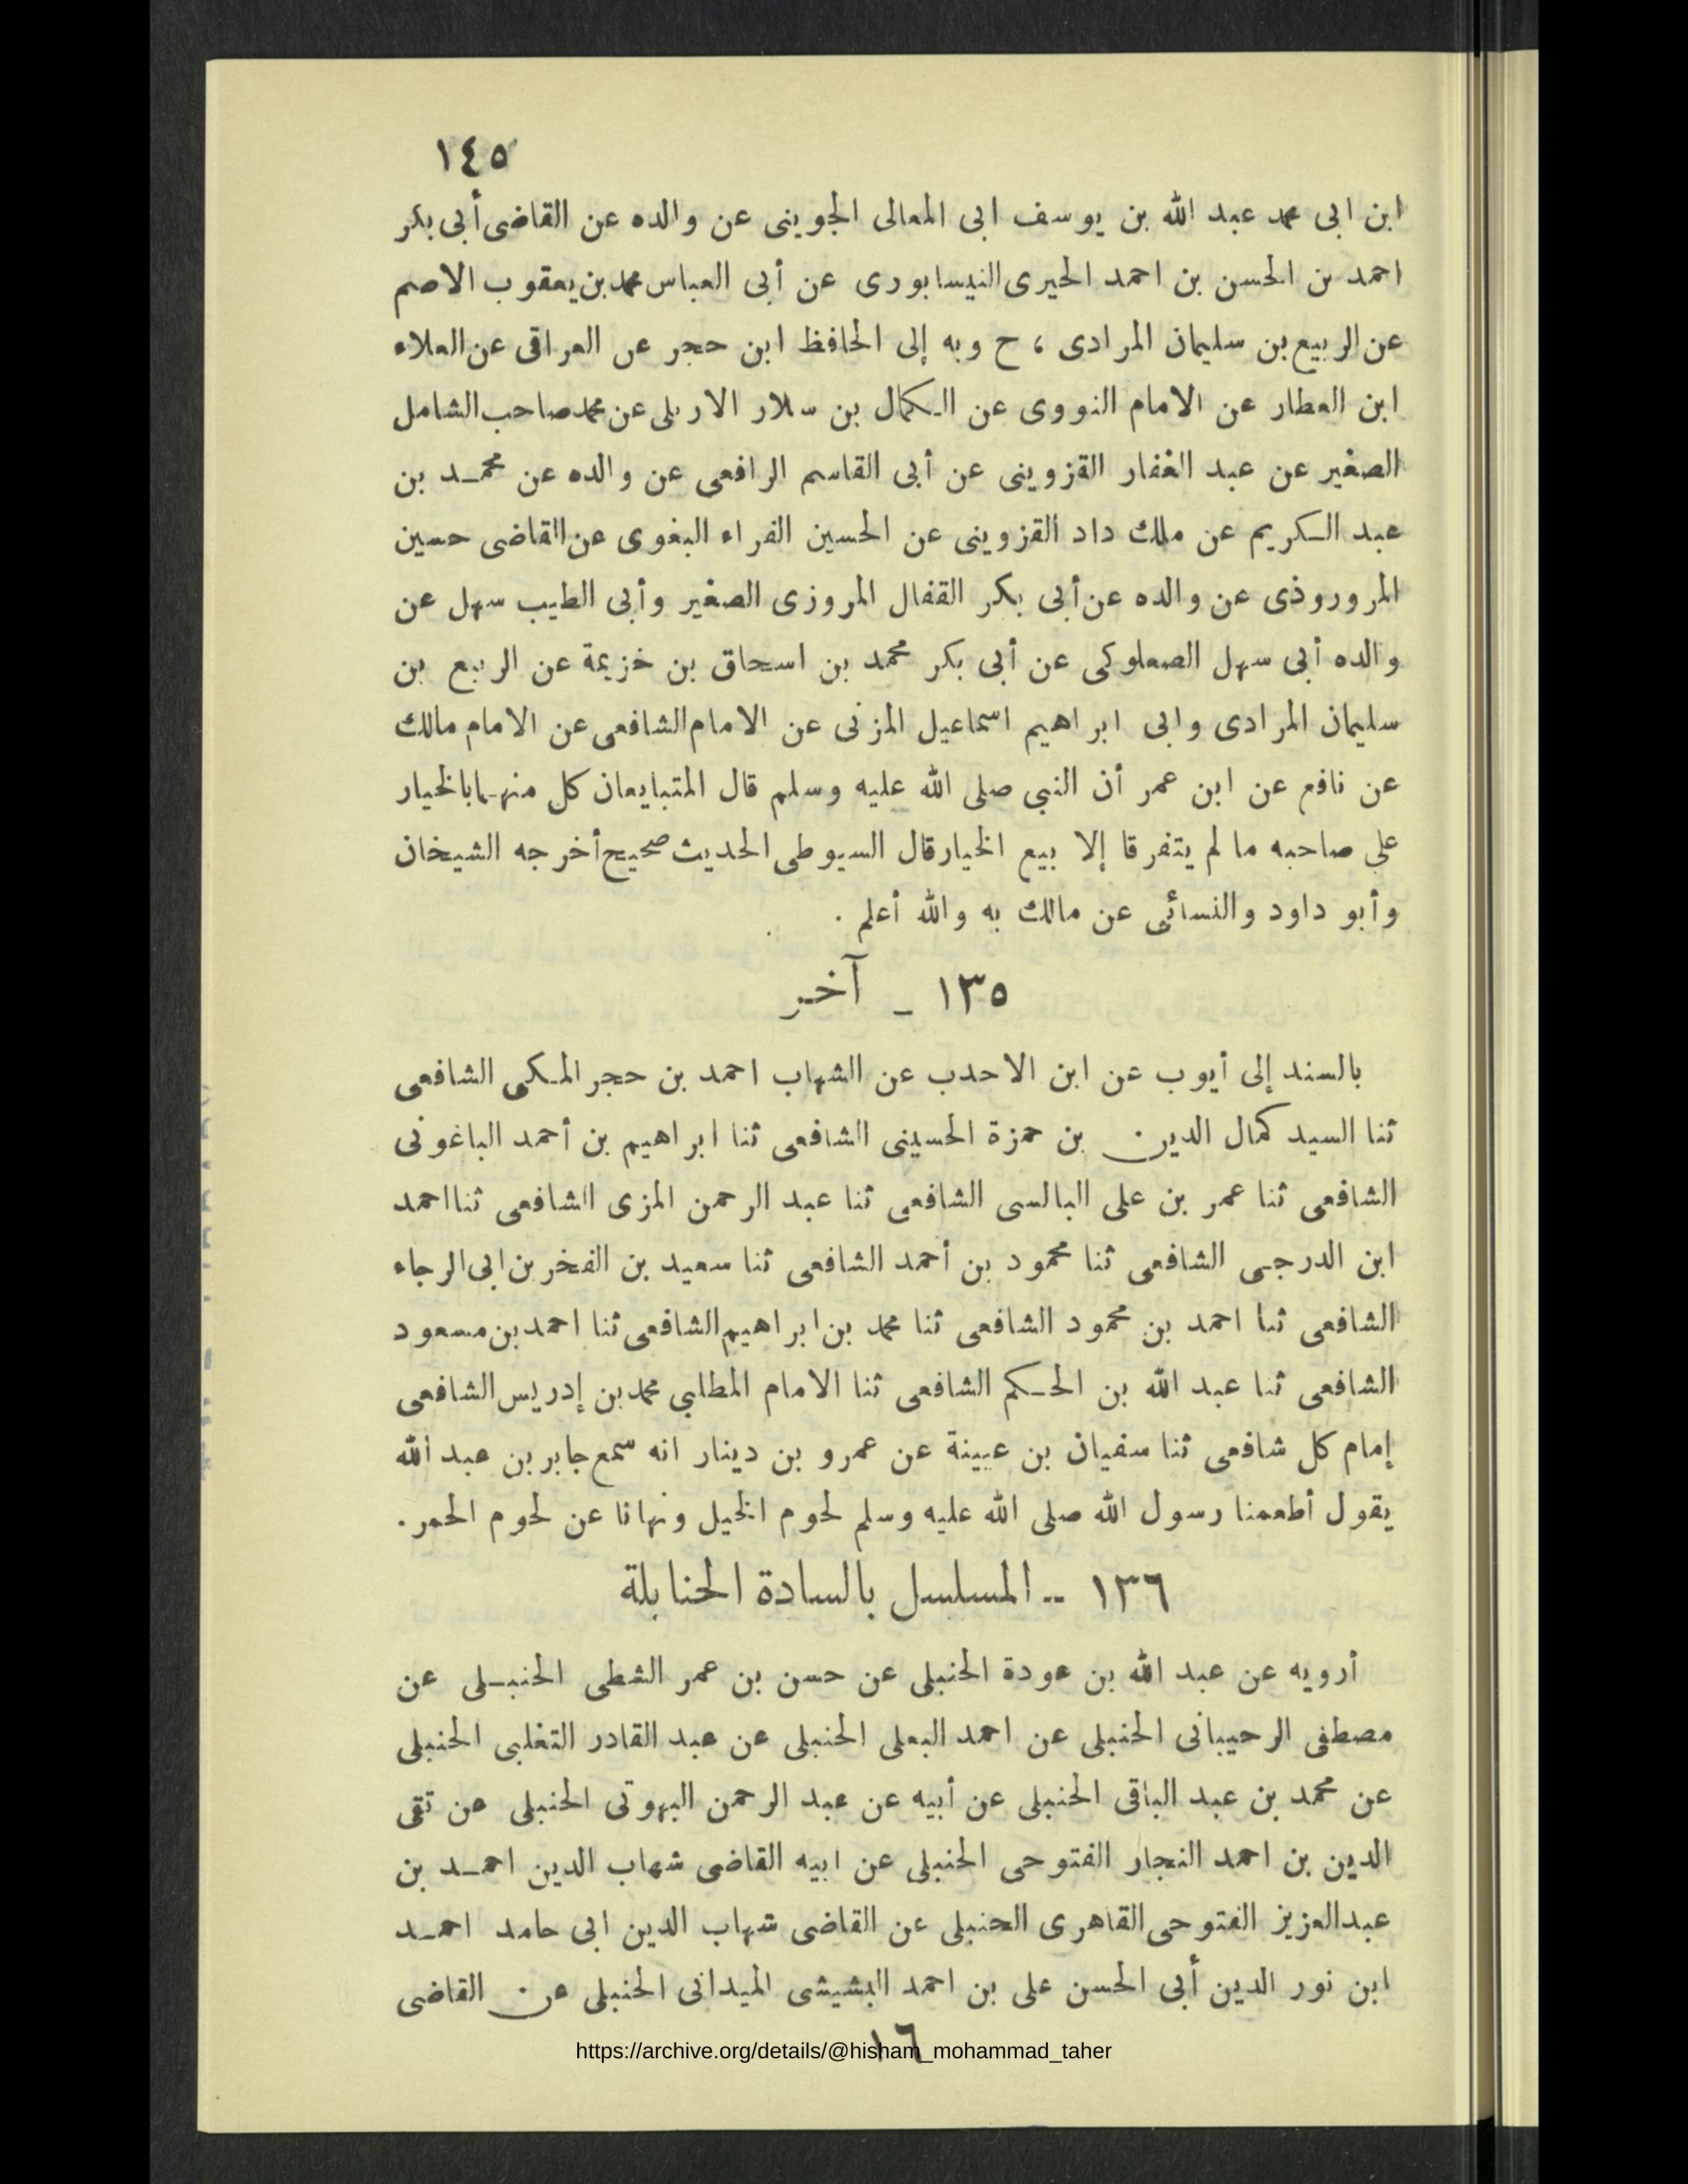 ١٤٥
ابن ابى محمد عبد الله بن يوسف ابى المعالى الجوينى عن والده عن القاضى أبى بكر
احمد بن الحسن بن احمد الحيرى النيسابورى عن أبى العباس محمد بن يعقوب الاصم
عن الربيع بن سليمان المرادى ، ح وبه إلى الحافظ ابن حجر عن العراقى عن العلاء
ابن العطار عن الامام النووى عن الـكمال بن سلار الاربلى عن محمد صاحب الشامل
الصغير عن عبد الغفار القزوينى عن أبى القاسم الرافعى عن والده عن محمـد بن
عبد الـكريم عن ملك داد القزوينى عن الحسين الفراء البغوى عن القاضى حسين
المروروذى عن والده عن أبى بكر القفال المروزى الصغير وأبى الطيب سهل عن
والده أبى سهل الصعلوكى عن أبى بكر محمد بن اسحاق بن خزيمة عن الربيع بن
سليمان المرادى وابى ابراهيم اسماعيل المزنى عن الامام الشافعى عن الامام مالك
عن نافع عن ابن عمر أن النبي صلى الله عليه وسلم قال المتبايعان كل منهـما بالخيار
على صاحبه ما لم يتفرقا إلا بيع الخيار قال السيوطى الحديث صحيح أخرجه الشيخان
وأبو داود والنسائى عن مالك به والله أعلم .
١٣٥ ـ آخر
بالسند إلى أيوب عن ابن الاحدب عن الشهاب احمد بن حجر المـكى الشافعى
ثنا السيد كمال الدين بن حمزة الحسينى الشافعى ثنا ابراهيم بن أحمد الباغونى
الشافعى ثنا عمر بن على البالسى الشافعى ثنا عبد الرحمن المزى الشافعى ثنا احمد
ابن الدرجـى الشافعى ثنا محمود بن أحمد الشافعى ثنا سعيد بن الفخر بن ابى الرجاء
الشافعى ثنا احمد بن محمود الشافعى ثنا محمد بن ابراهيم الشافعى ثنا احمد بن مسعود
الشافعى ثنا عبد الله بن الحـكم الشافعى ثنا الامام المطلبي محمد بن إدريس الشافعى
إمام كل شافعى ثنا سفيان بن عيينة عن عمرو بن دينار انه سمع جابر بن عبد الله
يقول أطعمنا رسول الله صلى الله عليه وسلم لحوم الخيل ونهانا عن لحوم الحمر .
١٣٦ -- المسلسل بالسادة الحنابلة
أرويه عن عبد الله بن عودة الحنبلى عن حسن بن عمر الشطى الحنبـلى عن
مصطفى الرحيبانى الحنبلى عن احمد البعلى الحنبلى عن عبد القادر التغلبى الحنبلى
عن محمد بن عبد الباقى الحنبلى عن أبيه عن عبد الرحمن البهوتى الحنبلى عن تقى
الدين بن احمد النجار الفتوحى الحنبلى عن ابيه القاضى شهاب الدين احمـد بن
عبدالعزيز الفتوحى القاهرى الحنبلى عن القاضى شهاب الدين ابى حامد احمـد
ابن نور الدين أبى الحسن على بن احمد البشيشى الميدانى الحنبلى عن القاضى
١٦
https://archive.org/details/@hisham_mohammad_taher